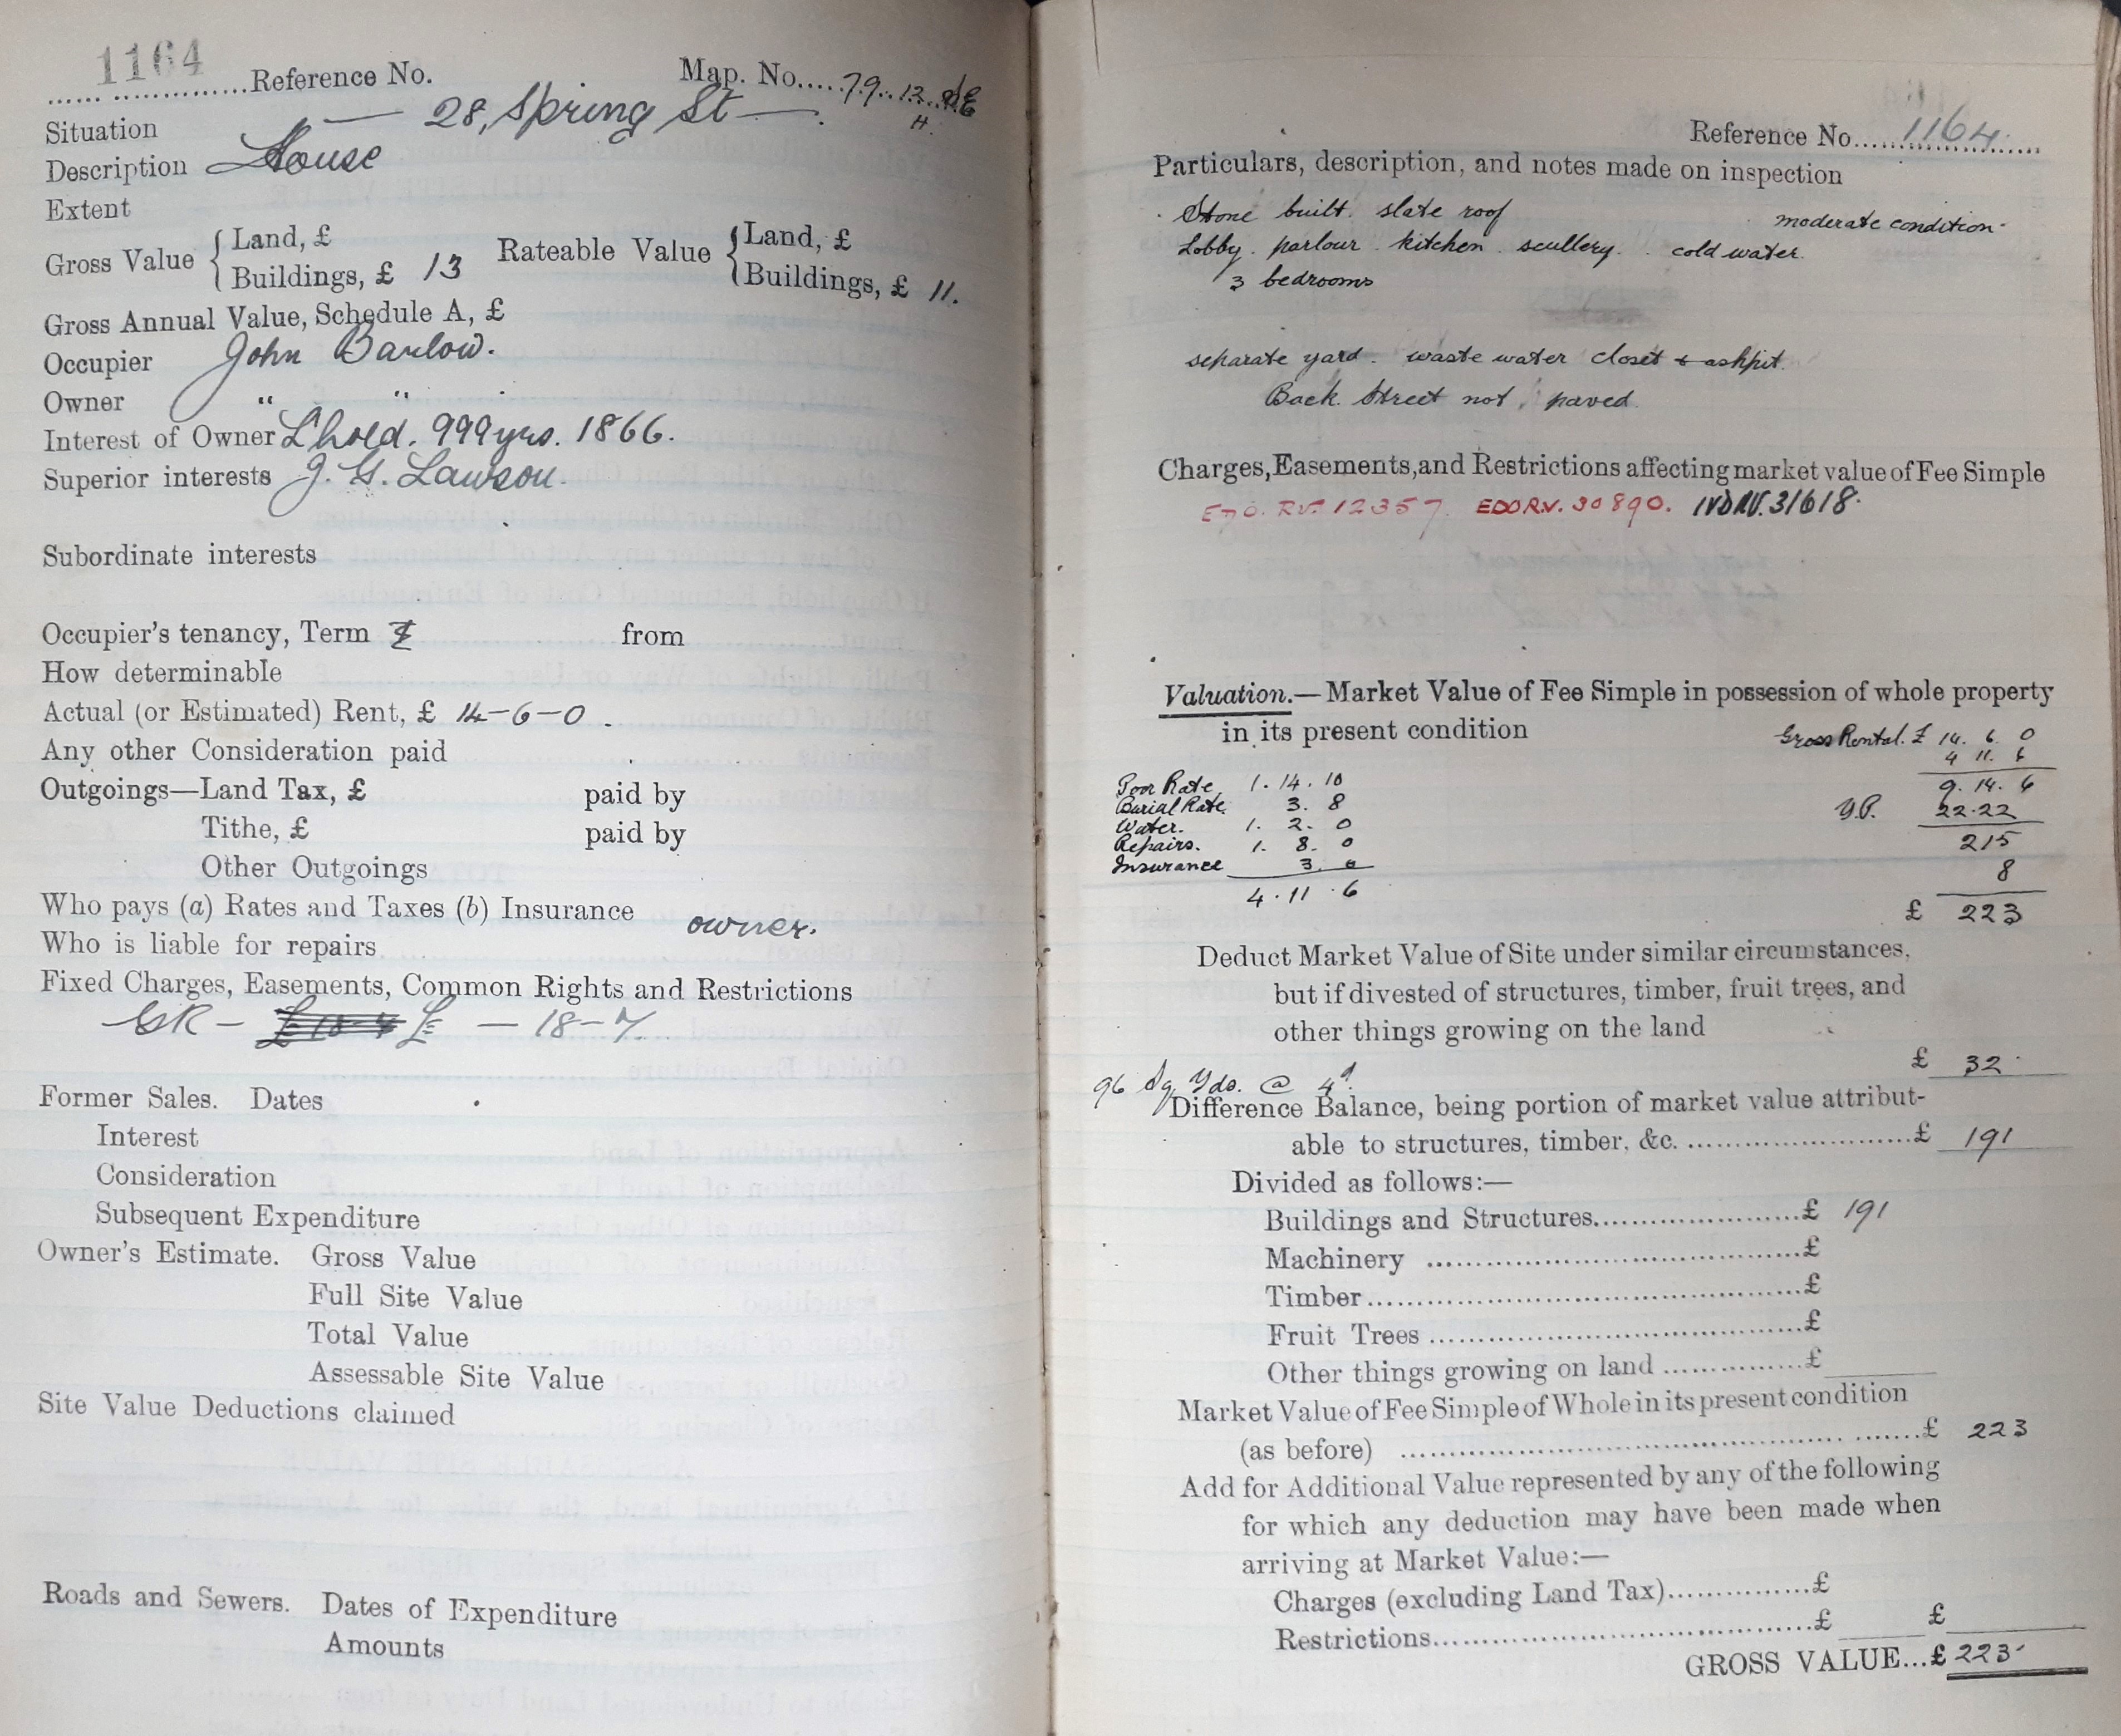 1164
Reference No.
Map. No. 79. 12. SE
H.
Situation — 28, Spring St —
Description House
Extent
Gross Value { Land, £
Buildings, £ 13
Rateable Value { Land, £
Buildings, £ 11.
Gross Annual Value, Schedule A, £
Occupier John Barlow.
Owner " "
Interest of Owner L'hold. 999 yrs. 1866.
Superior interests J. G. Lawson.
Subordinate interests
Occupier's tenancy, Term from
How determinable
Actual (or Estimated) Rent, £ 14-6-0.
Any other Consideration paid
Outgoings—Land Tax, £ paid by
Tithe, £ paid by
Other Outgoings
Who pays (a) Rates and Taxes (b) Insurance owner.
Who is liable for repairs
Fixed Charges, Easements, Common Rights and Restrictions
GR — £ — 18-7
Former Sales. Dates
Interest
Consideration
Subsequent Expenditure
Owner's Estimate. Gross Value
Full Site Value
Total Value
Assessable Site Value
Site Value Deductions claimed
Roads and Sewers. Dates of Expenditure
Amounts
Reference No. 1164
Particulars, description, and notes made on inspection
Stone built. slate roof moderate condition.
Lobby. parlour. kitchen. scullery. cold water.
3 bedrooms
separate yard. waste water closet & ashpit.
Back Street not paved.
Charges, Easements, and Restrictions affecting market value of Fee Simple
RV. 12357. EDORV. 30890. IVDRV. 31618.
Valuation.—Market Value of Fee Simple in possession of whole property
in its present condition
Gross Rental. £ 14. 6. 0
4 11. 6
9. 14. 6
Y.P. 22.22
215
8
£ 223
Poor Rate 1. 14. 10
Burial Rate. 3. 8
Water. 1. 2. 0
Repairs. 1. 8. 0
Insurance 3. 0
4. 11. 6
Deduct Market Value of Site under similar circumstances,
but if divested of structures, timber, fruit trees, and
other things growing on the land
£ 32
96 Sq Yds. @ 4d.
Difference Balance, being portion of market value attribut-
able to structures, timber, &c. £ 191
Divided as follows:—
Buildings and Structures £ 191
Machinery £
Timber £
Fruit Trees £
Other things growing on land £
Market Value of Fee Simple of Whole in its present condition
(as before) £ 223
Add for Additional Value represented by any of the following
for which any deduction may have been made when
arriving at Market Value:—
Charges (excluding Land Tax) £
Restrictions £ £
GROSS VALUE...£ 223